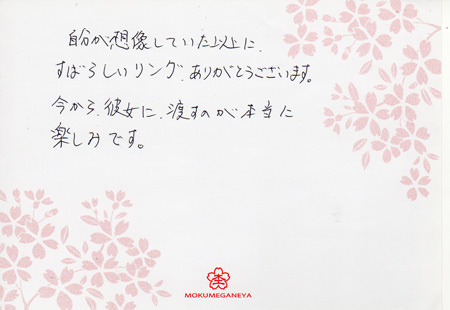 自分が想像していた以上に、
すばらしいリング、ありがとうございます。
今から、彼女に、渡すのが本当に
楽しみです。
MOKUMEGANEYA